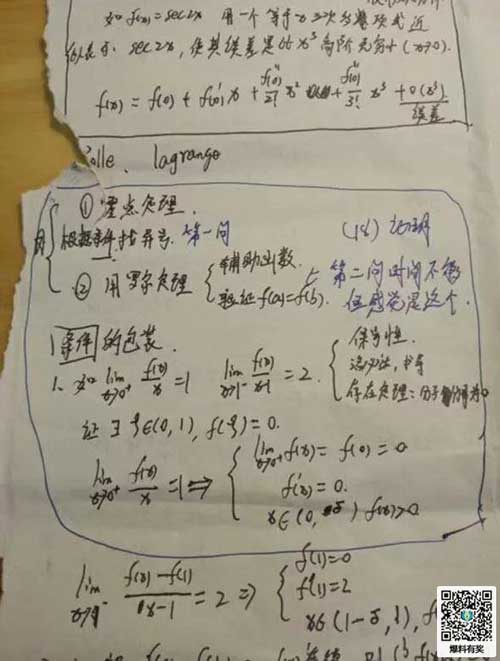 如 f(x)=sec2x 用一个等于 三次多项式近
似表示 sec2x, 使其误差是比x³高阶无穷小(x→0).
f(x) = f(0) + f'(0)x + f''(0)/2! x² + f'''(0)/3! x³ + o(x³)
误差
olle、lagrange
① 零点定理.
根据条件找异号. 第一问
(18) 证明
② 用罗尔定理 { 辅助函数.
验证 f(a)=f(b).
第二问时间不够
但感觉是这个.
条件的包装.
1. 如 lim x→0⁺ f(x)/x = 1 lim x→1⁻ f(x)/x-1 = 2. { 保号性.
定义法, 求导
存在定理: 分子分母为0
证 ∃ ξ∈(0,1), f(ξ)=0.
lim x→0⁺ f(x)/x = 1 ⇒ { lim x→0⁺ f(x) = f(0) = 0
f'(x)=0.
x∈(0, δ) f(x)>0
lim x→1⁻ f(x)-f(1)/x-1 = 2 ⇒ { f(1)=0
f'(1)=2
x∈(1-δ, 1), f
爆料有奖